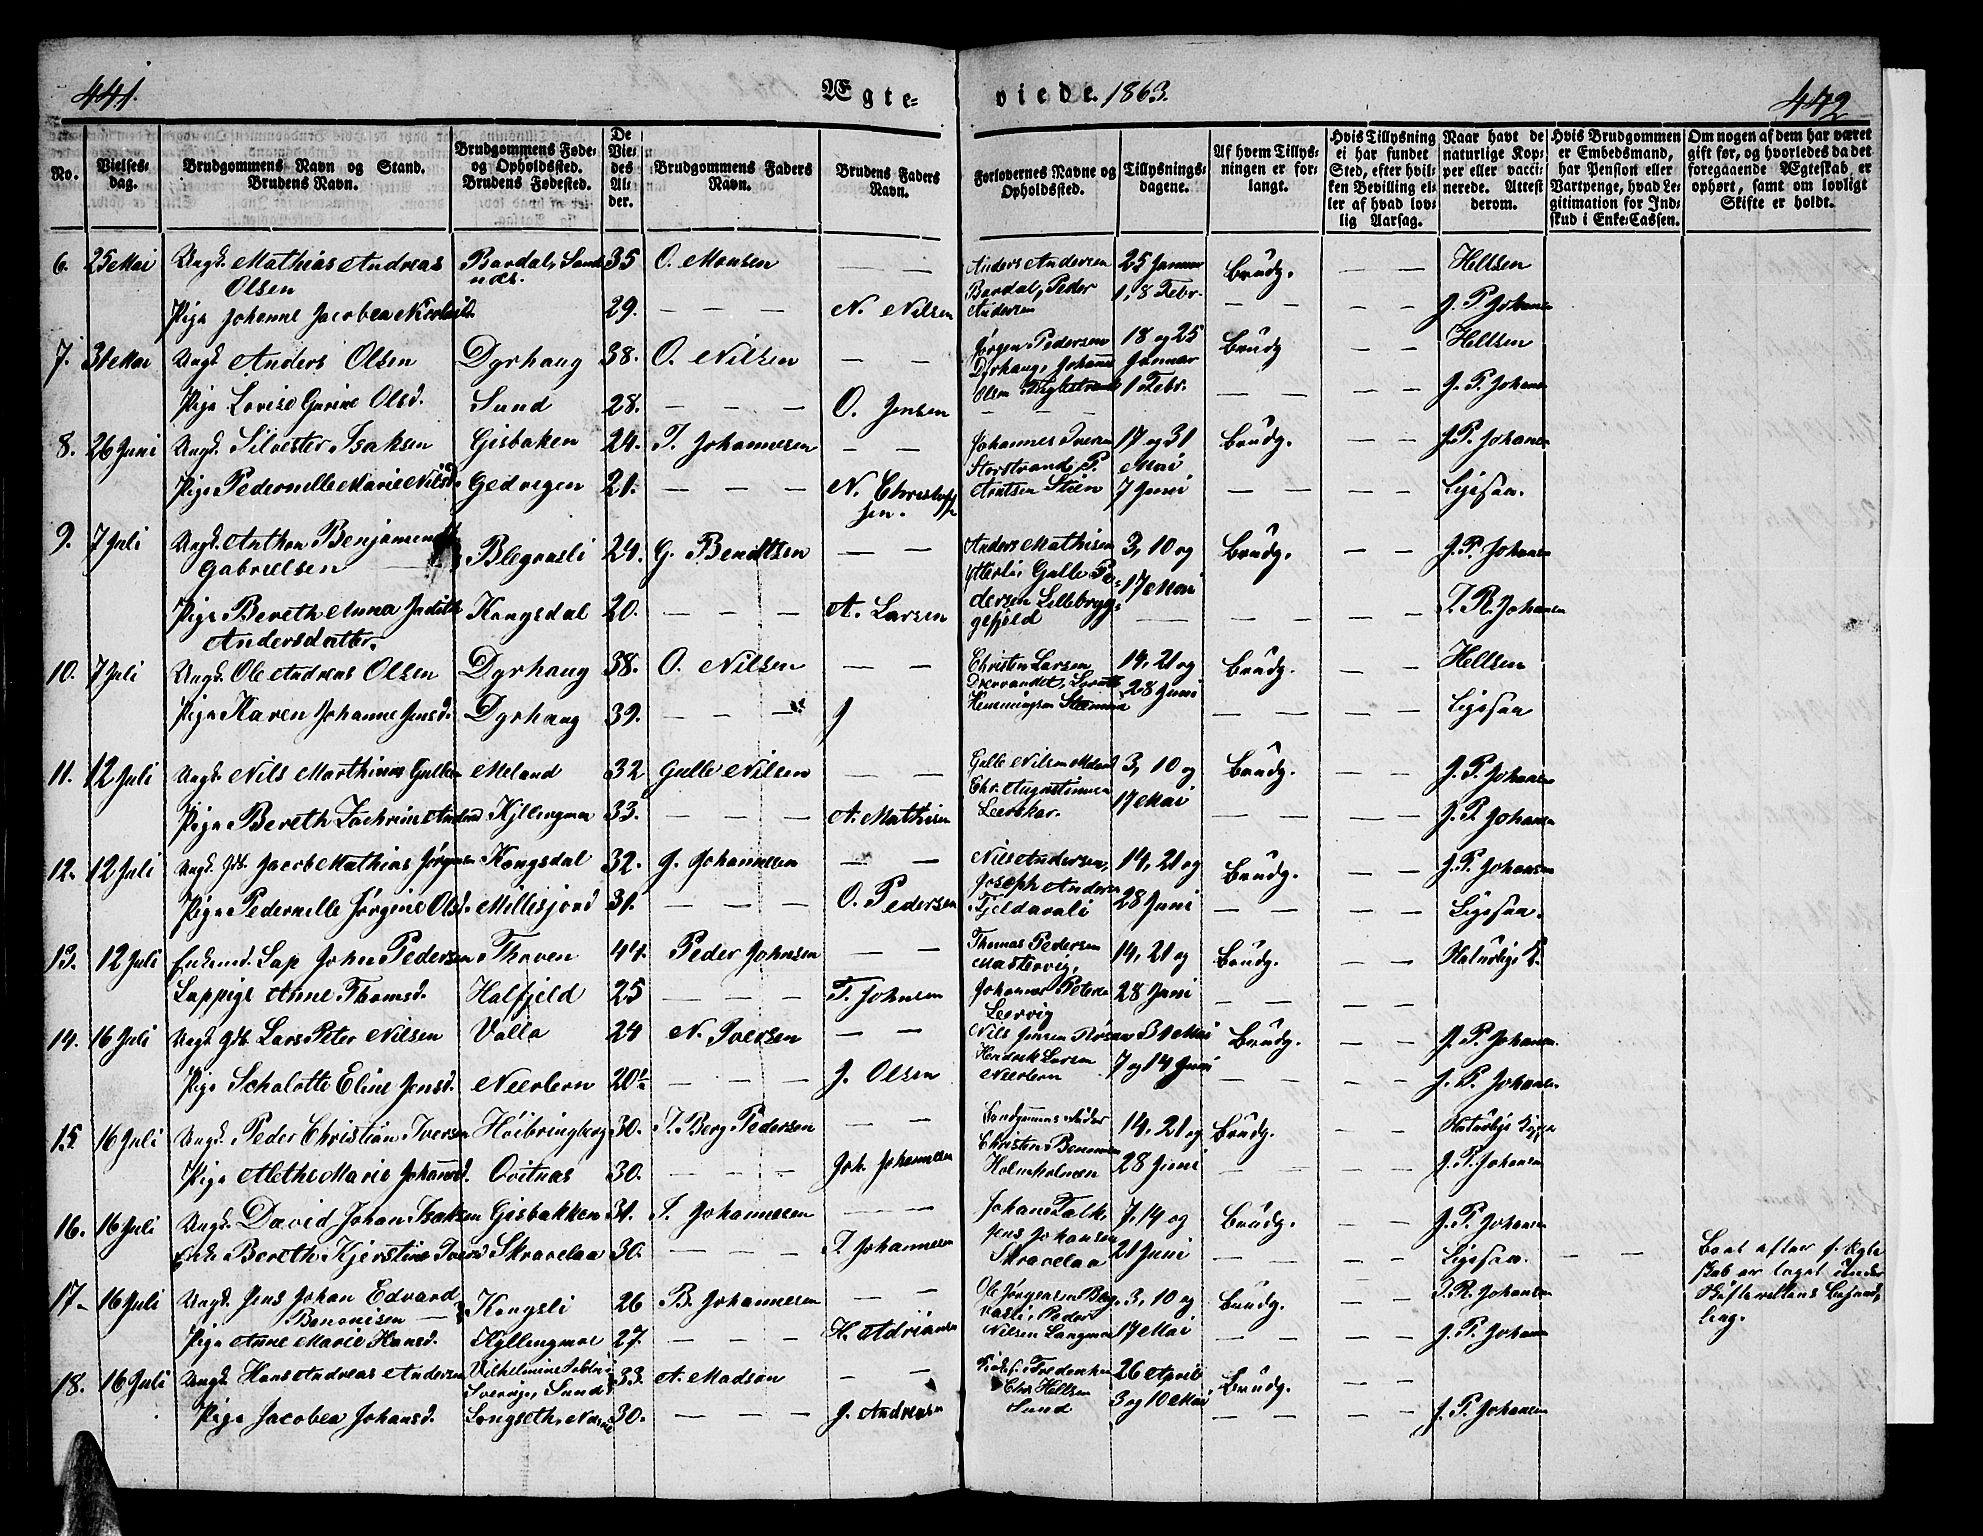 441.
Ægte-
viede. 1863.
442
No.
Vielses-
dag.
Brudgommens Navn og Stand.
Brudens Navn.
Brudgommens Føde-
og Opholdssted.
Brudens Fødested.
De
Vie-
des
Al-
der.
Brudgommens Faders
Navn.
Brudens Faders
Navn.
Forlovernes Navne og
Opholdssted.
Tillysnings-
dagene.
Af hvem Tillys-
ningen er for-
langt.
Hvis Tillysning
ei har fundet
Sted, efter hvil-
ken Bevilling el-
ler af hvad lov-
lig Aarsag.
Naar havt de
naturlige Kop-
per eller vacci-
nerede. Attest
derom.
Hvis Brudgommen
er Embedsmand,
har Pension eller
Vartpenge, hvad Le-
gitimation for Ind-
skud i Enke-Cassen.
Om nogen af dem har været
gift før, og hvorledes da det
foregaaende Ægteskab er
ophørt, samt om lovligt
Skifte er holdt.
6. 25 Mai Ungk. Mathias Andreas Bardal, Sund 35 O. Monsen — — Anders Andersen 25 Januar Brudg. — — Hellsen
Olsen næs. Bardal, Peder 1, 8 Febr.
Pige Johanne Jacobea 29. — — — N. Nilsen Andersen — — — — J. P. Johansen
7. 31 Mai Ungk. Anders Olsen Dyrhaug 38. O. Nilsen — — Jørgen Pedersen 18 og 25 Brudg — — Hellsen
Dyrhaug, Johannes Januar
Pige Lovise Gurine Olsd. Sund 28. — — — O. Jensen Olsen 1 Febr. — — J. P. Johansen
8. 26 Juni Ungk. Silvester Isaksen Gisbaken 24. I. Johannesen — — Johannes Iversen 17 og 31 Brudg. — — J. P. Johansen
Storstrand, P. Mai
Pige Pedernelle Marie Nilsd. Gedvigen 21. — — — N. Christoff- Arntsen Stien 7 Juni — — — — Ligesaa.
sen.
9. 7 Juli Ungk. Anthon Benjamin Blegrasli 24. G. Bendtsen — — Anders Mathisen 3, 10 og Brudg. — — J. P. Johansen
Gabrielsen Ytterli, Gulle Pe- 17 Mai
Pige Bereth Anna Judith Kongsdal 20. — — — A. Larsen dersen Lillebryg- — — — — I. R. Johansen
Andersdatter. gefjeld
10. 7 Juli Ungk. Ole Andreas Olsen Dyrhaug 38. O. Nilsen — — Christen Larsen 14, 21 og Brudg. — — Hellsen
28 Juni
Pige Karen Johanne Jensd. Dyrhaug 39. — — — J Henningsen — — — — Ligesaa
11. 12 Juli Ungk. Nils Marthinus Gullesen Meland 32 Gulle Nilsen — — Gulle Nilsen Meland 3, 10 og Brudg. — — J. P. Johansen
Chr. Augustinusen 17 Mai
Pige Bereth Zachrine Andersd Kyllingmoe 33. — — — A. Mathisen Leerskar. — — — — J. P. Johansen
12. 12 Juli Ungk. Gdb. Jacob Mathias Jørgensen Kongsdal 32. J. Johannesen — — Nils Andersen, 14, 21 og Brudg. — — J. P. Johansen
Joseph Andersen
Pige Pedernille Jørgine Olsd. Millesjord 31. — — — O. Pedersen Fjeldavali 28 Juni — — — — Ligesaa.
13. 12 Juli Enkemd. Lap John Pedersen Thoven 44. Peder Johnsen — — Thomas Pedersen 14, 21 og Brudg. — — Naturlige K.
Mastervig,
Lappige Anne Thomsd. Halfjeld 25 — — — T. Johnsen Johannes Petersen 28 Juni — — — —
Leervig
14. 16 Juli Ungk. Gdb. Lars Peter Nilsen Valla 24 N. Iversen — — Nils Jensen 31 Mai Brudg. — — J. P. Johansen.
Hendrik Larsen
Pige Schalotte Eline Jensd. Neerlern 20½ — — — J. Olsen Neerlern 7 og 14 Juni — — — — J. P. Johansen
15. 16 Juli Ungk. Peder Christian Iversen Høibringberg 30. I. Berg Pedersen — — 14, 21 og Brudg. — — Naturlige Kopper
Christen
Pige Alethe Marie Johannesd. Qvitnæs 30. — — — Joh. Johannesen Holmholmen 28 Juni — — — — J. P. Johansen
16. 16 Juli Ungk. David Johan Isaksen Gisbakken 31. I. Johannesen — — Johan Falk, 7, 14 og Brudg. — — J. P. Johansen
Jens Johansen
Enke Bereth Kjerstine Iversd Skravelaa 30. — — — I. Johannesen Skravelaa 21 Juni — — — — Ligesaa. — — Boet efter f. Ægte
skab er taget under
Skifterettens Behand-
ling.
17. 16 Juli Ungk. Jens Johan Edvard Kongsli 26 B. Johannesen — — Ole Jørgensen 3, 10 og Brudg. — — I. R. Johansen
Benonisen Peder
Pige Anne Marie Hansd. Kyllingmoe 27. — — — H. Adriansen Nilsen Langmoe 17 Mai — — — — J. P. Johansen
18. 16 Juli Ungk. Hans Andreas Andersen Vilhelmine 33. A. Madsen — — Fredriksen 26 April Brudg. — —
Sverige, Sund Chr. Hellsen
Pige Jacobea Johansd. 30. — — — J. Andersen Sund 3 og 10 Mai — — — — J. P. Johansen